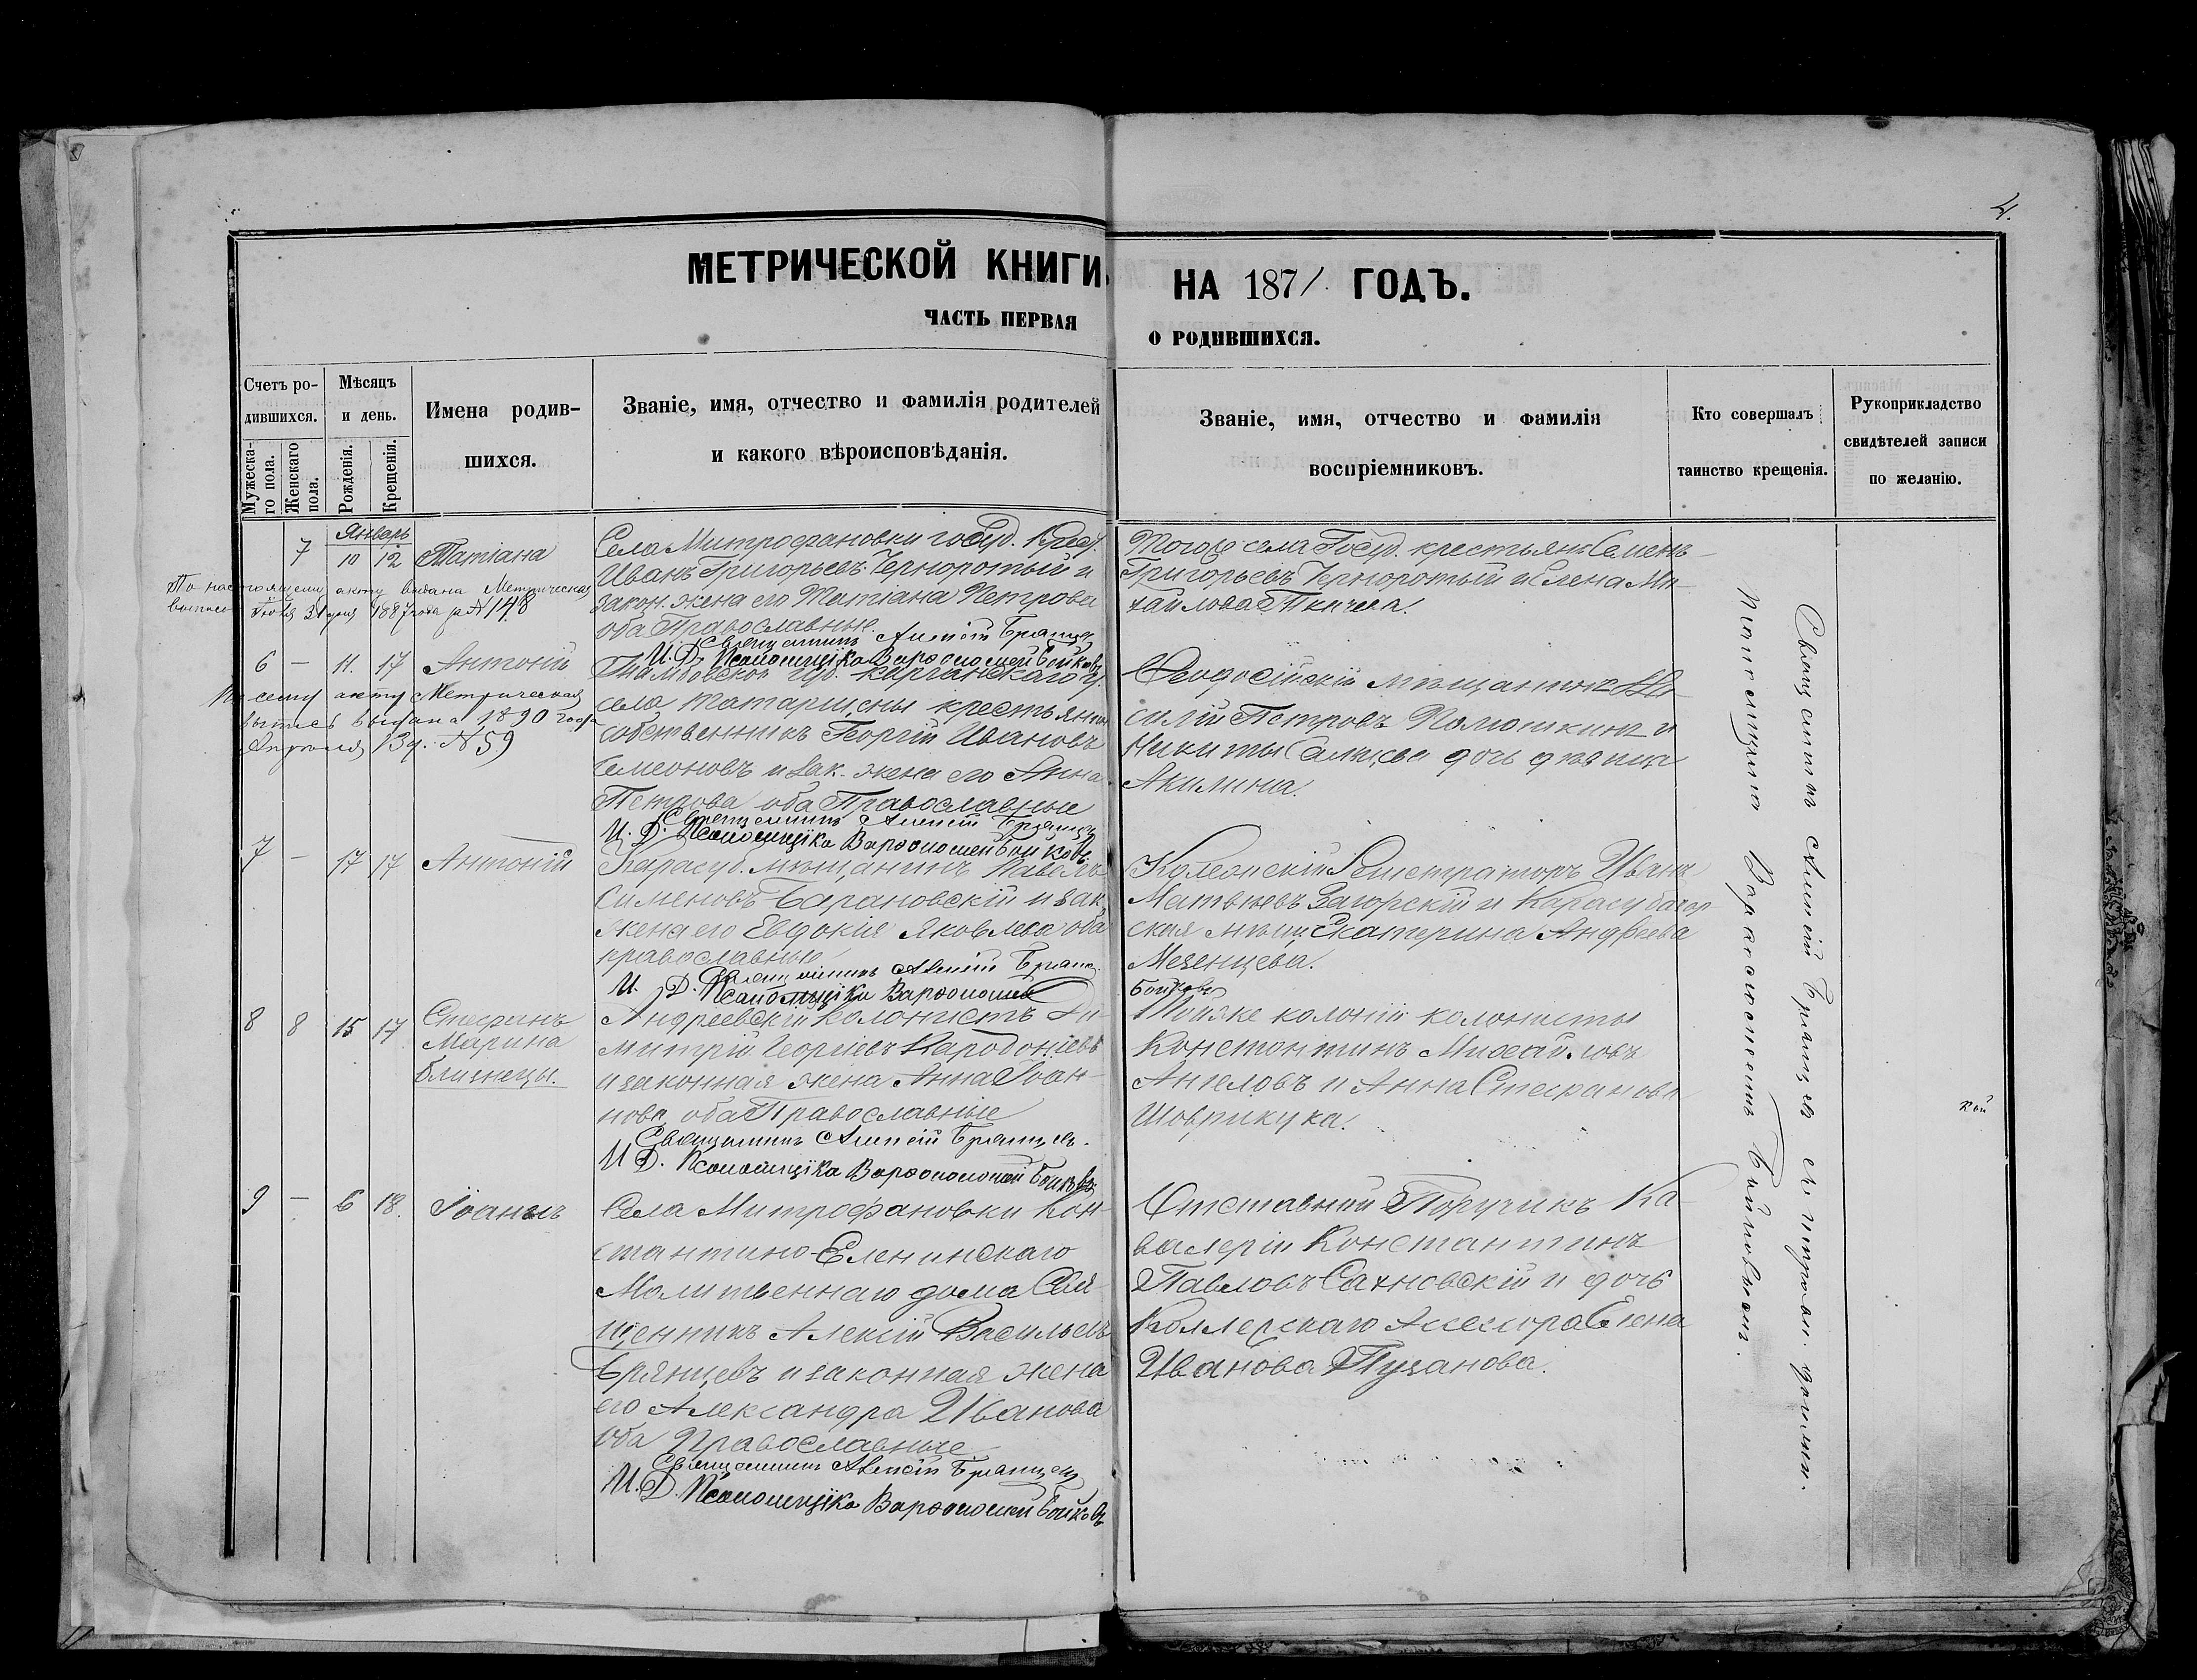 4.
МЕТРИЧЕСКОЙ КНИГИ НА 1871 ГОДЪ.
ЧАСТЬ ПЕРВАЯ О РОДИВШИХСЯ.
Счетъ родившихся.
Мужескаго пола.
Женскаго пола.
Мѣсяцъ и день.
Рожденія.
Крещенія.
Имена родившихся.
Званіе, имя, отчество и фамилія родителей
и какого вѣроисповѣданія.
Званіе, имя, отчество и фамилія
воспріемниковъ.
Кто совершалъ
таинство крещенія.
Рукоприкладство
свидѣтелей записи
по желанію.
Январь
7 10 12 Татіана
По настоящему акту выдана Метрическая
выпись Іюля 31 дня 1887 года за № 148
Села Митрофановки госуд. Крест.
Иванъ Григорьевъ Чернороτый и
закон. жена его Татіана Петрова
оба Православные.
Священникъ Алексій Брянцевъ
И. Д. Псаломщика Варѳоломей Бойковъ
Того же села Госуд. крестьянъ Семенъ
Григорьевъ Чернороτый и Елена Ми-
хайлова Ткачева.
6 — 11. 17 Антоній
По сему акту Метрическая
выпись выдана 1890 года
Апрѣля 13 д. № 59
Тамбовской губ.
села крестьянинъ
собственникъ Георгій Ивановъ
Симеоновъ и зак. жена его Анна
Петрова оба Православные
Священникъ Алексій Брянцевъ
И. Д. Псаломщика Варѳоломей Бойковъ
Ѳеодосійскій мѣщанинъ Ва-
силій Петровъ и
Никиты дочь дѣвица
Акилина.
7 — 17 17 Антоній
Карасуб. мѣщанинъ Павелъ
Сименовъ Барановскій и зак.
жена его Евдокія Яковлева оба
православные
Священникъ Алексій Брянц.
И. Д. Псаломщика Варѳоломей
Бойковъ
Колежскій Регистраторъ Иванъ
Матвѣевъ Загорскій и Карасубазар-
ская мѣщ. Екатерина Андреева
Мезенцева.
8 8 15 17 Стефанъ
Марина
близнецы.
Андреевскій Колонистъ Ди-
митрій Георгіевъ
и законная жена Анна Іоан-
нова оба Православные
Священникъ Алексій Брянцевъ.
И. Д. Псаломщика Варѳоломей Бойковъ
Тойже колоніи колонисты
Константинъ Михайловъ
Ангеловъ и Анна Стефанова
кой
9 — 6 18. Іоаннъ
Села Митрофановки Кон-
стантино-Еленинскаго
Молитвеннаго дома Свя-
щенникъ Алексій Васильевъ
Брянцевъ и законная жена
его Александра Иванова
оба Православные
Священникъ Алексій Брянцевъ
И. Д. Псаломщика Варѳоломей Бойковъ
Отставной Поручикъ Ка-
валеріи Константинъ
Павловъ Сахновскій и дочь
Коллежскаго Асессора Елена
Иванова Пузанова.
Священникъ Алексій Брянцевъ съ
Псаломщикомъ Варѳоломеемъ Бойковымъ.